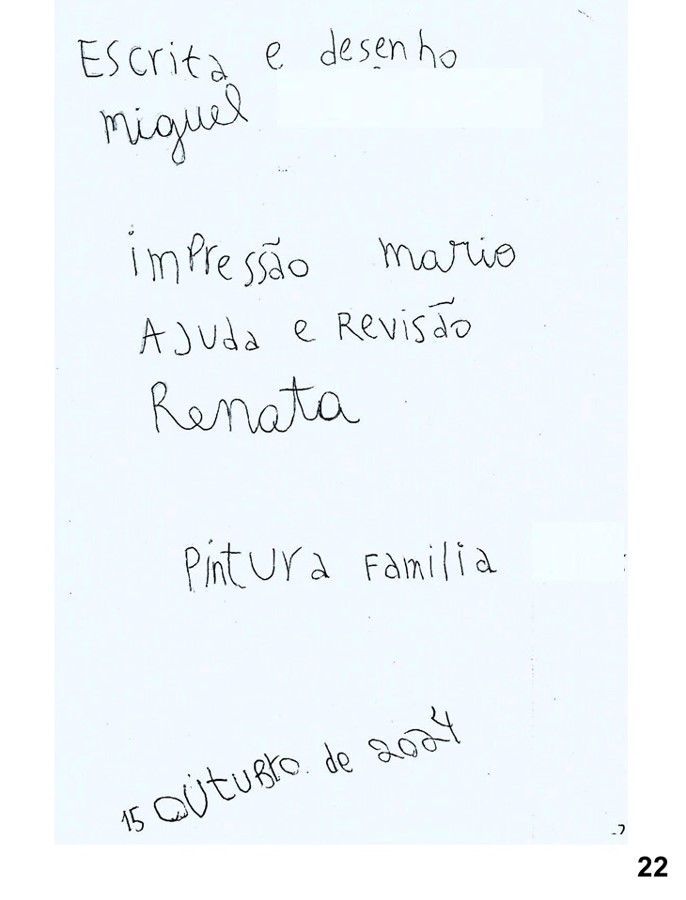 Escrita e desenho
miguel
impressão mario
AJUda e Revisão
Renata
Pintura Familia
15 outubro. de 2024
22